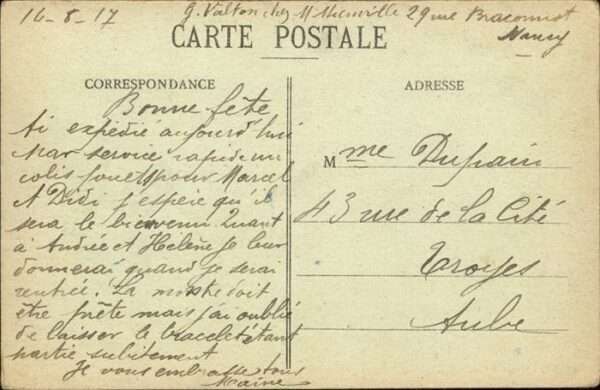 16-8-17 G. Valton chez M Thiriville 29 rue Braconnot
Nancy
CARTE POSTALE
CORRESPONDANCE
Bonne fête
Ai expédié aujourd'hui
par service rapide un
colis jouets pour Marcel
et Didi j'espère qu'il
sera le bienvenu Quant
à Andrée et Hélène je leur
donnerai quand je serai
rentrée. La montre doit
être prête mais j'ai oublié
de laisser le bracelet étant
partie subitement
Je vous embrasse tous
ADRESSE
Mme Dupain
43 rue de la Cité
Troyes
Aube